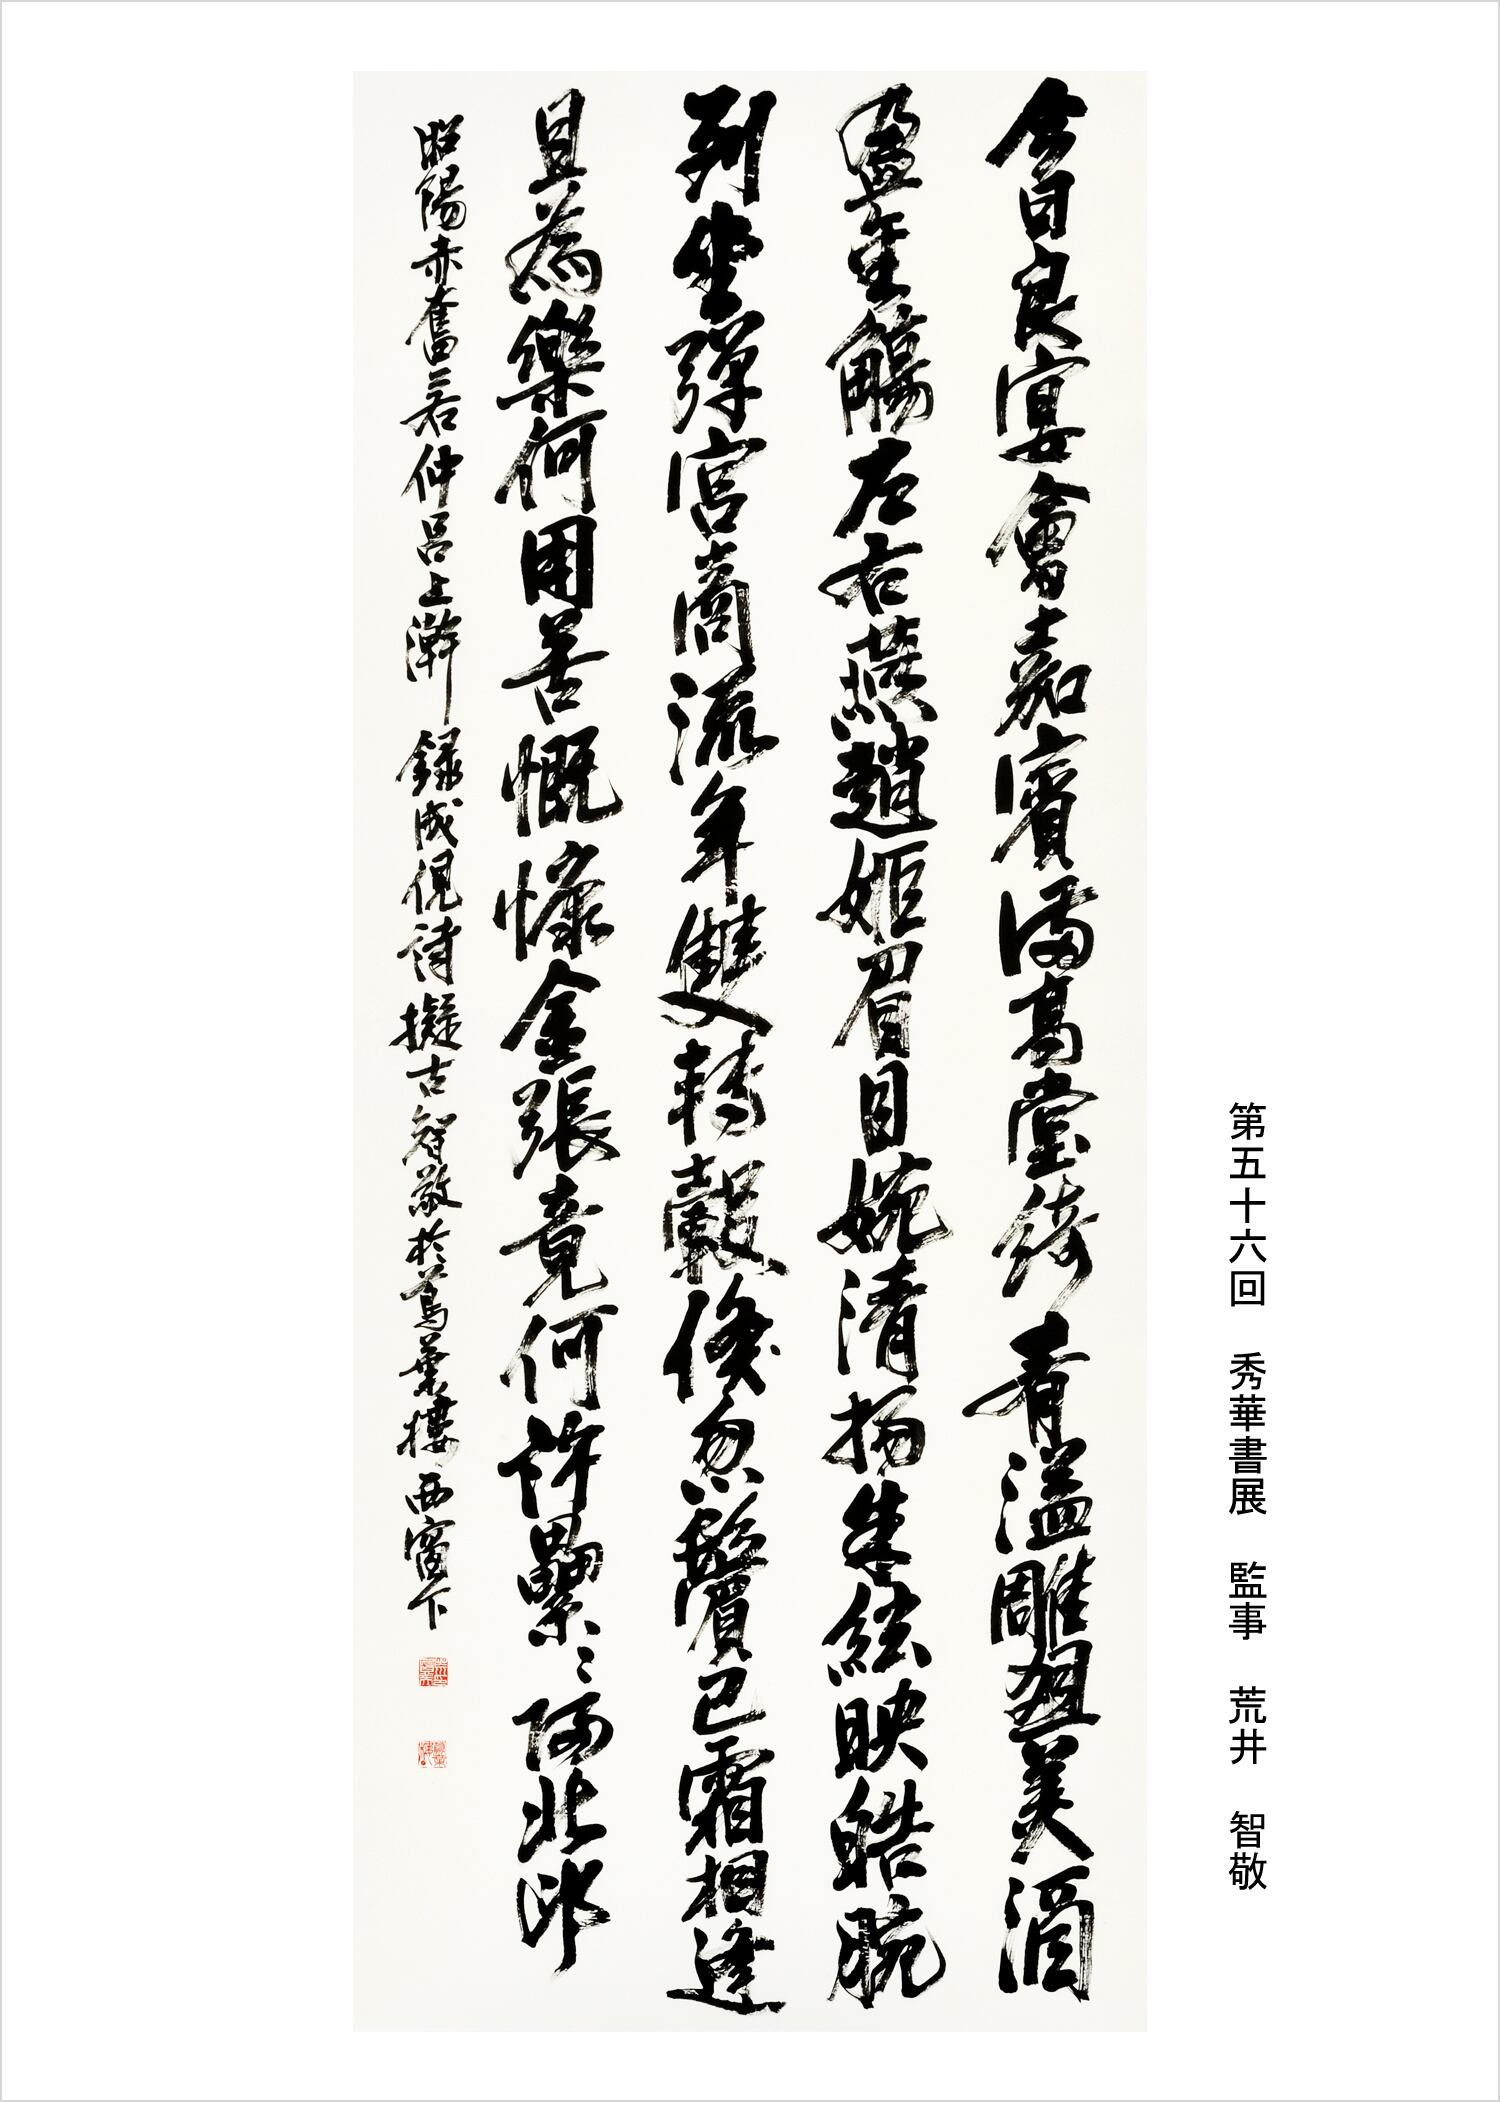 第五十六回 秀華書展 監事 荒井 智敬
今日良宴會嘉賓滿高堂綺肴溢雕俎美酒
盈金觴左右燕趙姫眉目婉清揚朱絃映皓腕
列坐弾宮商流年雙轉轂倏忽鬢已霜相逢
且為樂何用苦慨慷金張竟何許纍〻北邙
昭陽赤奮若仲呂上澣 録成俔詩擬古智敬於蔦葉樓西窗下